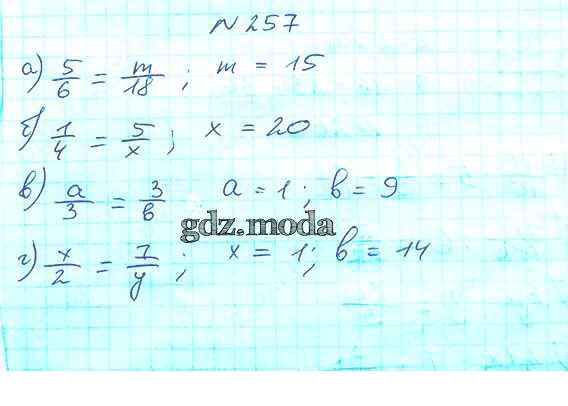 N 257
а) 5/6 = m/18 ; m = 15
б) 1/4 = 5/x ; x = 20
в) a/3 = 3/в a = 1 ; в = 9
gdz.moda
г) x/2 = 7/y ; x = 1 ; в = 14